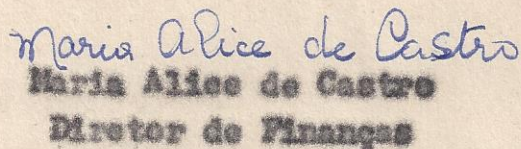 Maria Alice de Castro
Maria Alice de Castro
Diretor de Finanças